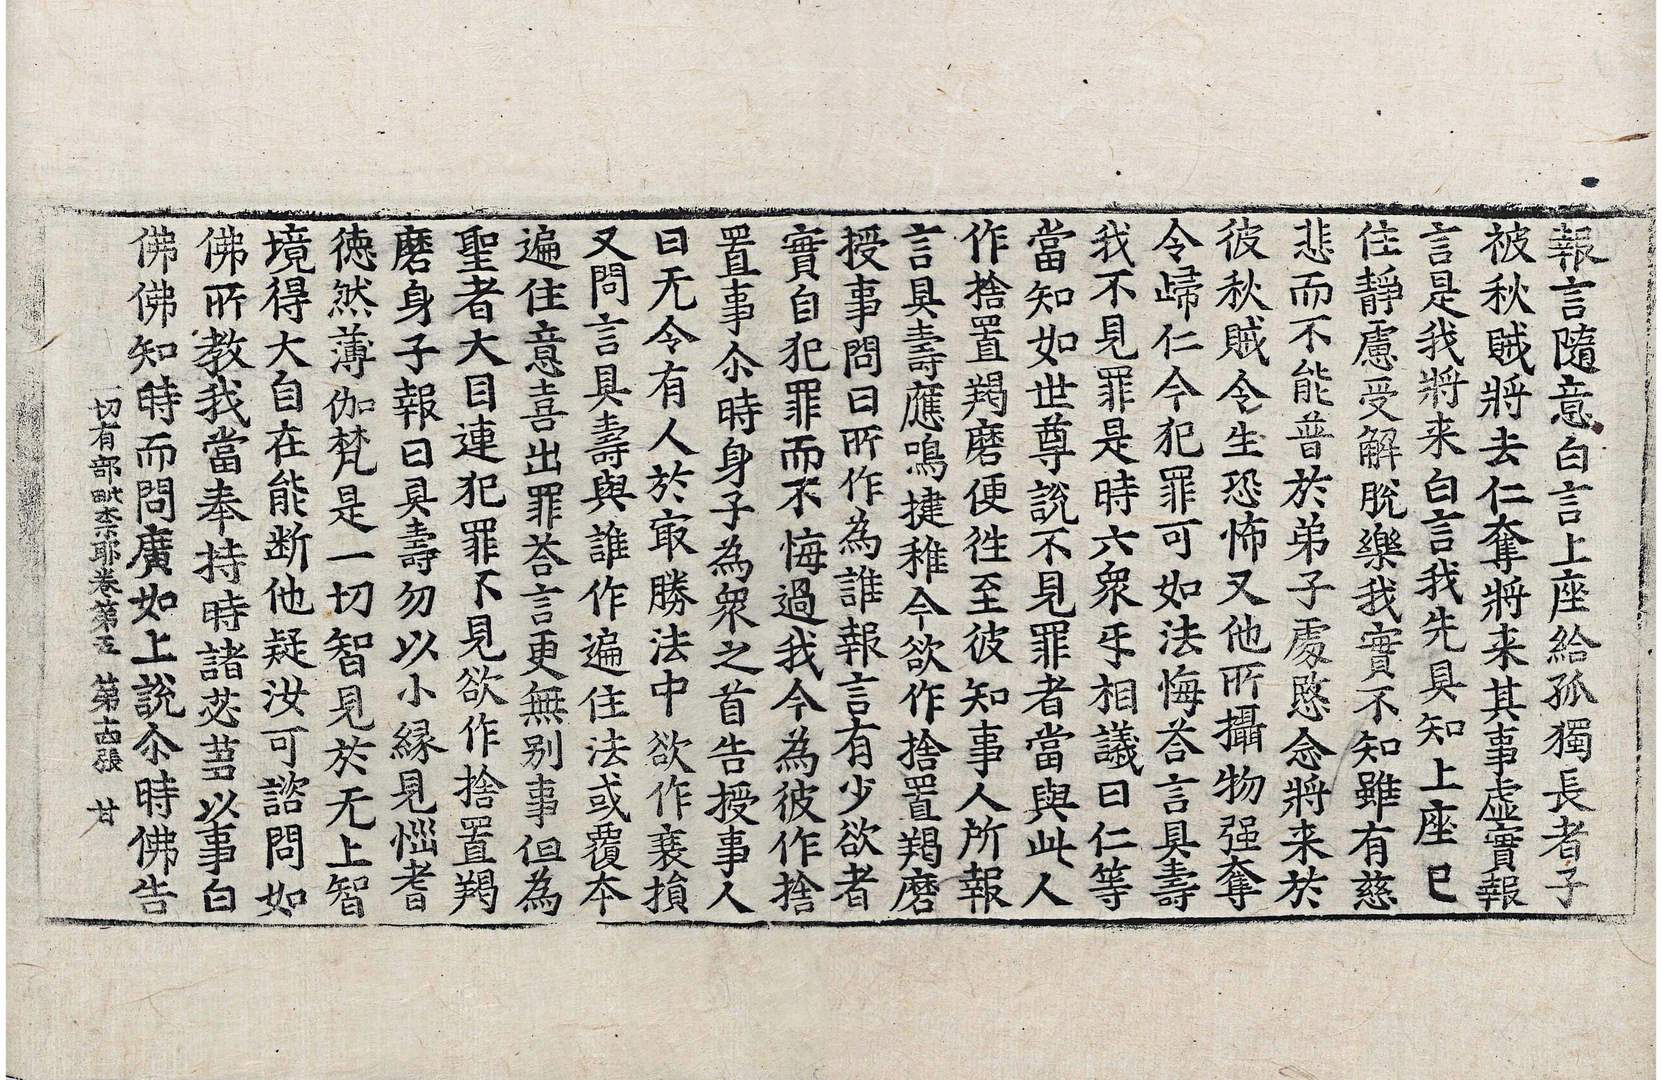 報言隨意白言上座給孤獨長者子
被秋賊將去仁奪將来其事虛實報
言是我將来白言我先具知上座已
住靜慮受解脫樂我實不知雖有慈
悲而不能普於弟子處愍念將来於
彼秋賊令生恐怖又他所攝物强奪
令歸仁今犯罪可如法悔荅言具壽
我不見罪是時六衆㸦相議曰仁等
當知如世尊說不見罪者當與此人
作捨置羯磨便徃至彼知事人所報
言具壽應鳴揵稚今欲作捨置羯磨
授事問曰所作為誰報言有少欲者
實自犯罪而不悔過我今為彼作捨
置事尒時身子為衆之首告授事人
曰无令有人於㝡勝法中欲作衰損
又問言具壽與誰作遍住法或覆夲
遍住意喜出罪荅言更無别事但為
聖者大目連犯罪不見欲作捨置羯
磨身子報曰具壽勿以小縁見惱耆
徳然薄伽梵是一切智見於无上智
境得大自在能断他疑汝可諮問如
佛所教我當奉持時諸苾芻以事白
佛佛知時而問廣如上說尒時佛告
一切有部毗柰耶卷第五　第十四張　甘